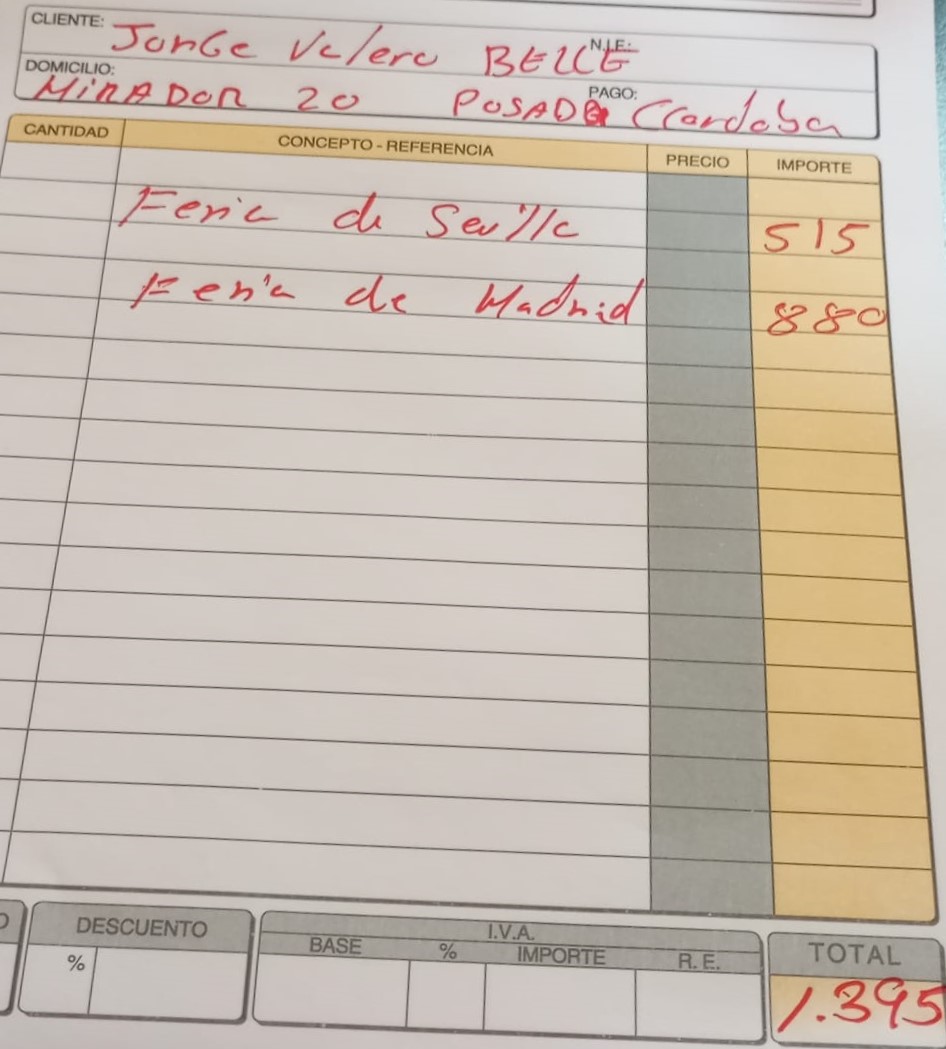 CLIENTE: Jorge Valero BELLE N.I.F.:
DOMICILIO: MIRADOR 20 POSADO PAGO: (Cordoba
CANTIDAD CONCEPTO - REFERENCIA PRECIO IMPORTE
Feria de Sevilla 515
Feria de Madrid 880
DESCUENTO I.V.A. TOTAL
% BASE % IMPORTE R. E.
1.395